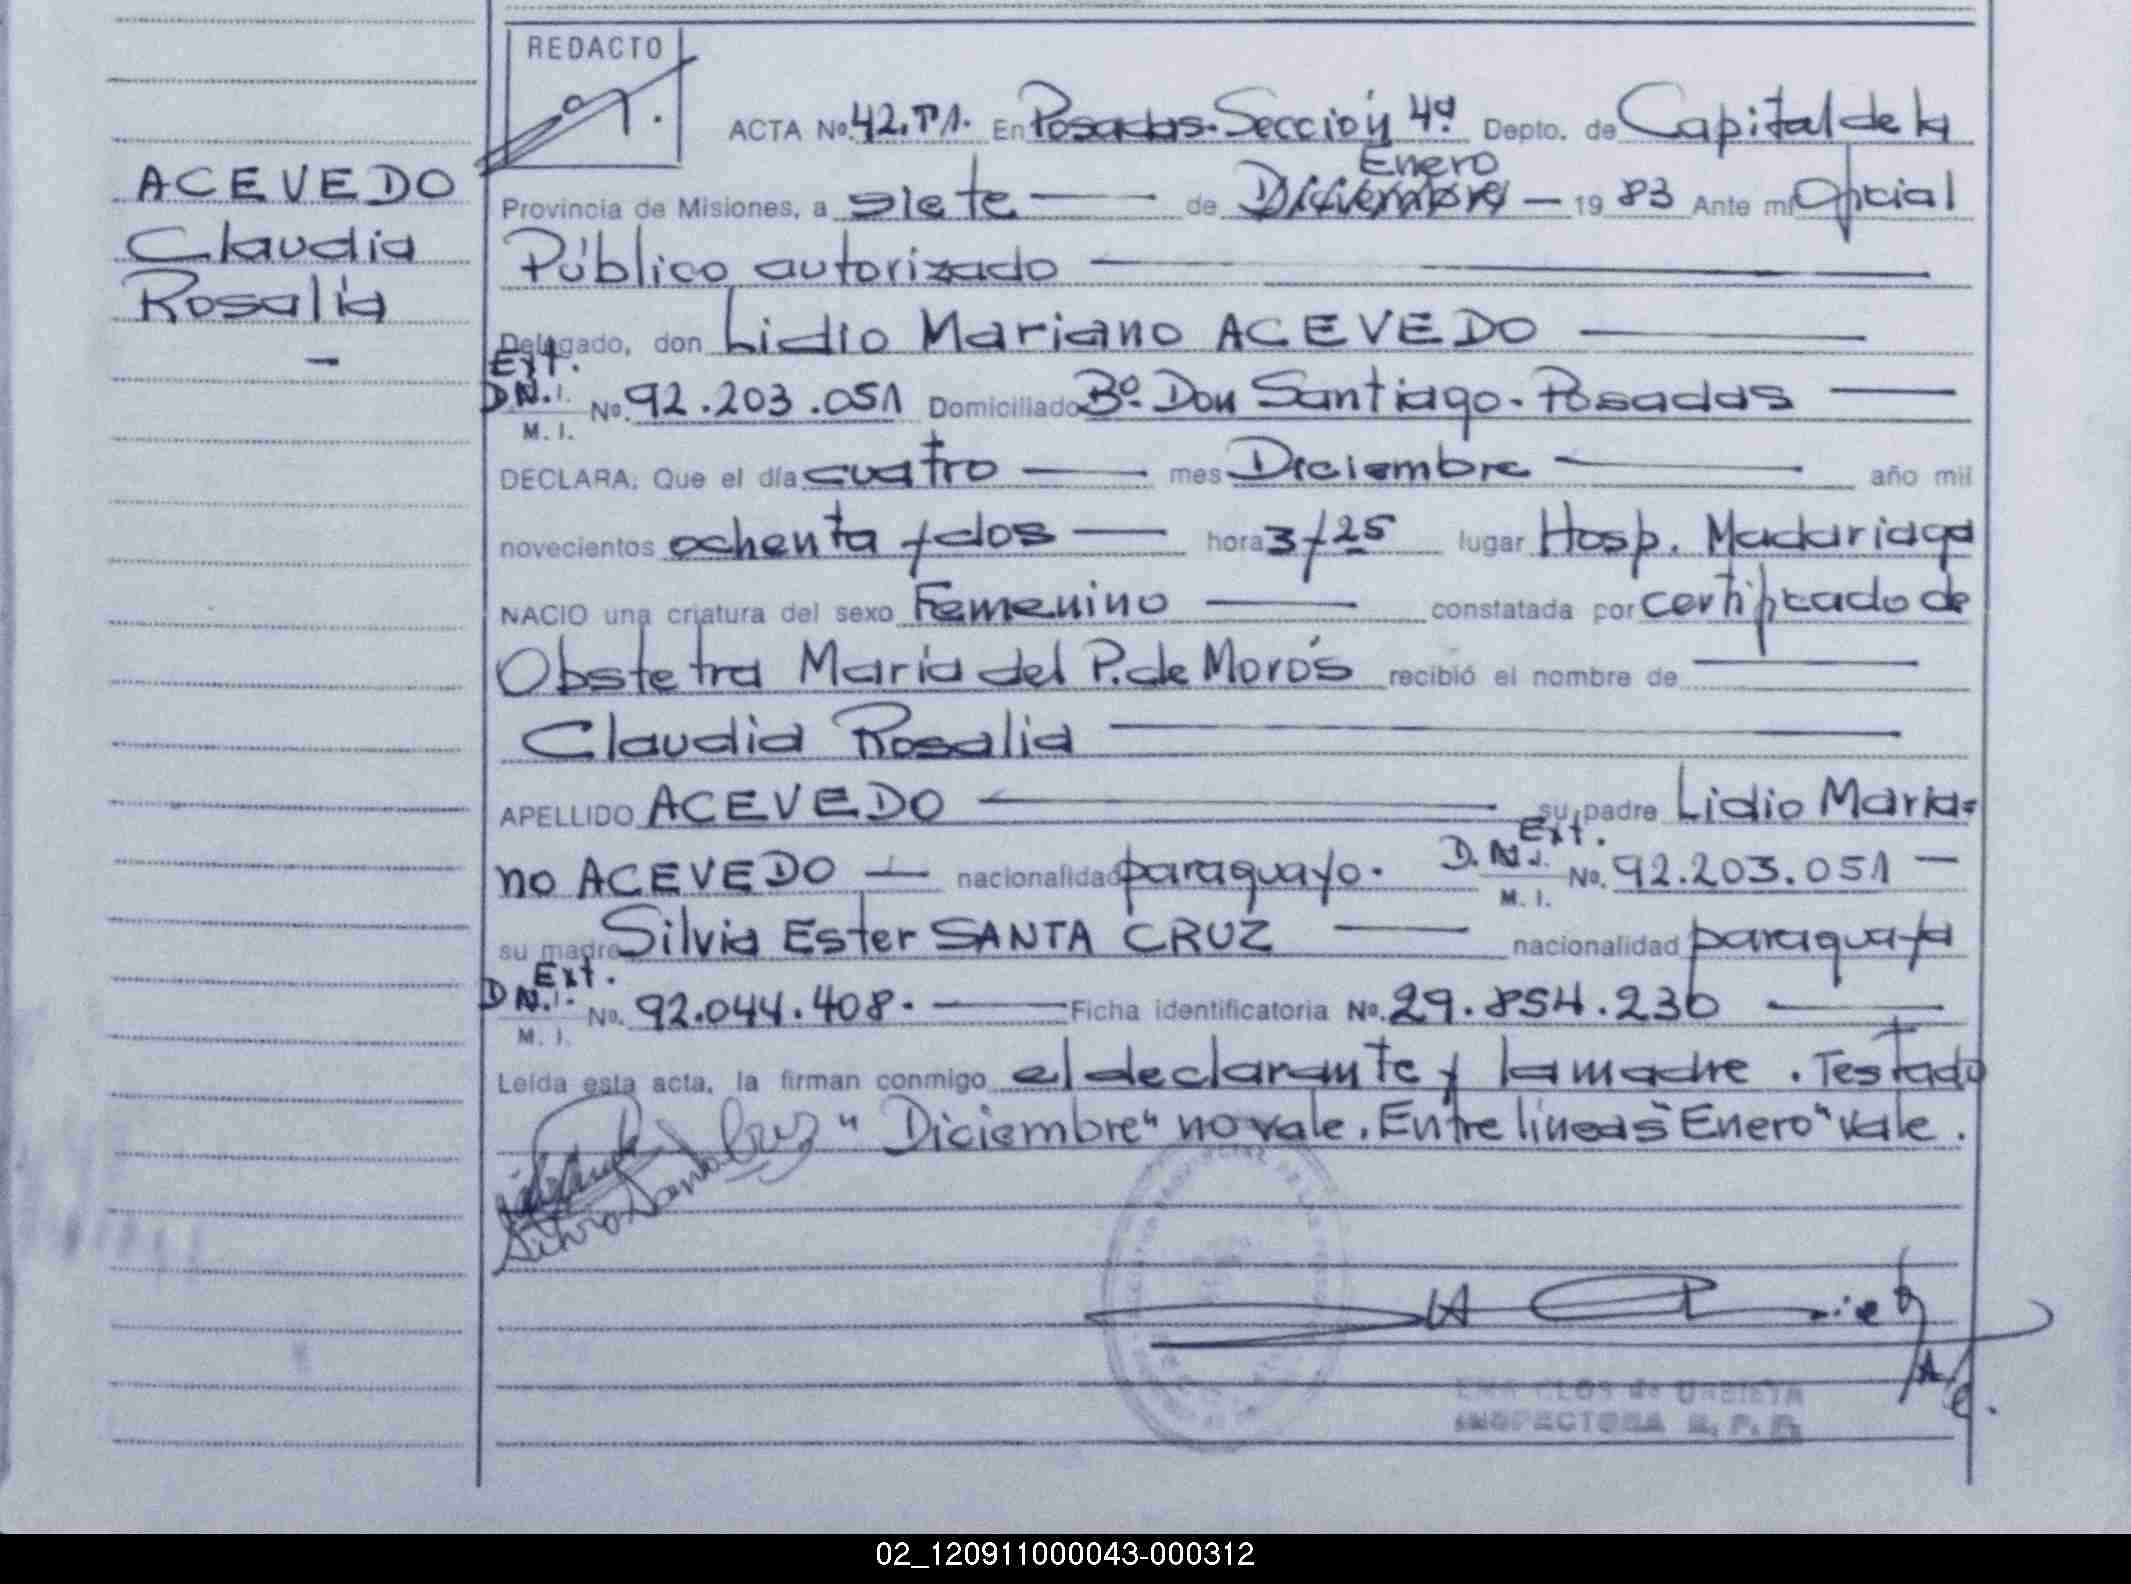 REDACTO
ACTA No. 42. T1. En Posadas. Sección 4ª Depto. de Capital de la
Enero
Provincia de Misiones, a siete de Diciembre 19 83 Ante mi Oficial
Público autorizado
Delegado, don Lidio Mariano ACEVEDO
Ext.
D.N.I. No. 92.203.051 Domiciliado Bº. Don Santiago. Posadas
M. I.
DECLARA: Que el día cuatro mes Diciembre año mil
novecientos ochenta y dos hora 3/25 lugar Hosp. Madariaga
NACIO una criatura del sexo Femenino constatada por certificado de
Obstetra María del P. de Morós recibió el nombre de
Claudia Rosalia
APELLIDO ACEVEDO su padre Lidio Maria=
Ext.
no ACEVEDO nacionalidad paraguayo. D.N.I. No. 92.203.051
M. I.
su madre Silvia Ester SANTA CRUZ nacionalidad paraguaya
Ext.
D.N.I. No. 92.044.408. Ficha identificatoria No. 29.854.230
M. I.
Leída esta acta, la firman conmigo el declarante y la madre . Testado
"Diciembre" no vale. Entre líneas "Enero" vale.
Silvia Santa Cruz
de URBIETA
INSPECTORA R. P. P.
ACEVEDO
Claudia
Rosalia
02_120911000043-000312